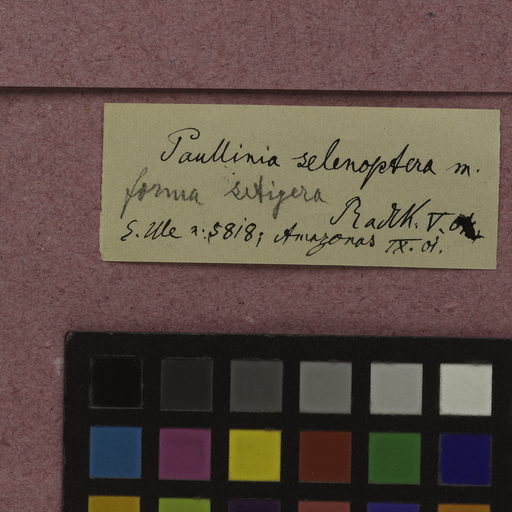 Paullinia selenoptera m.
forma setigera
Radlk. V.
E. Ule n. 5818; Amazonas IX. 01.